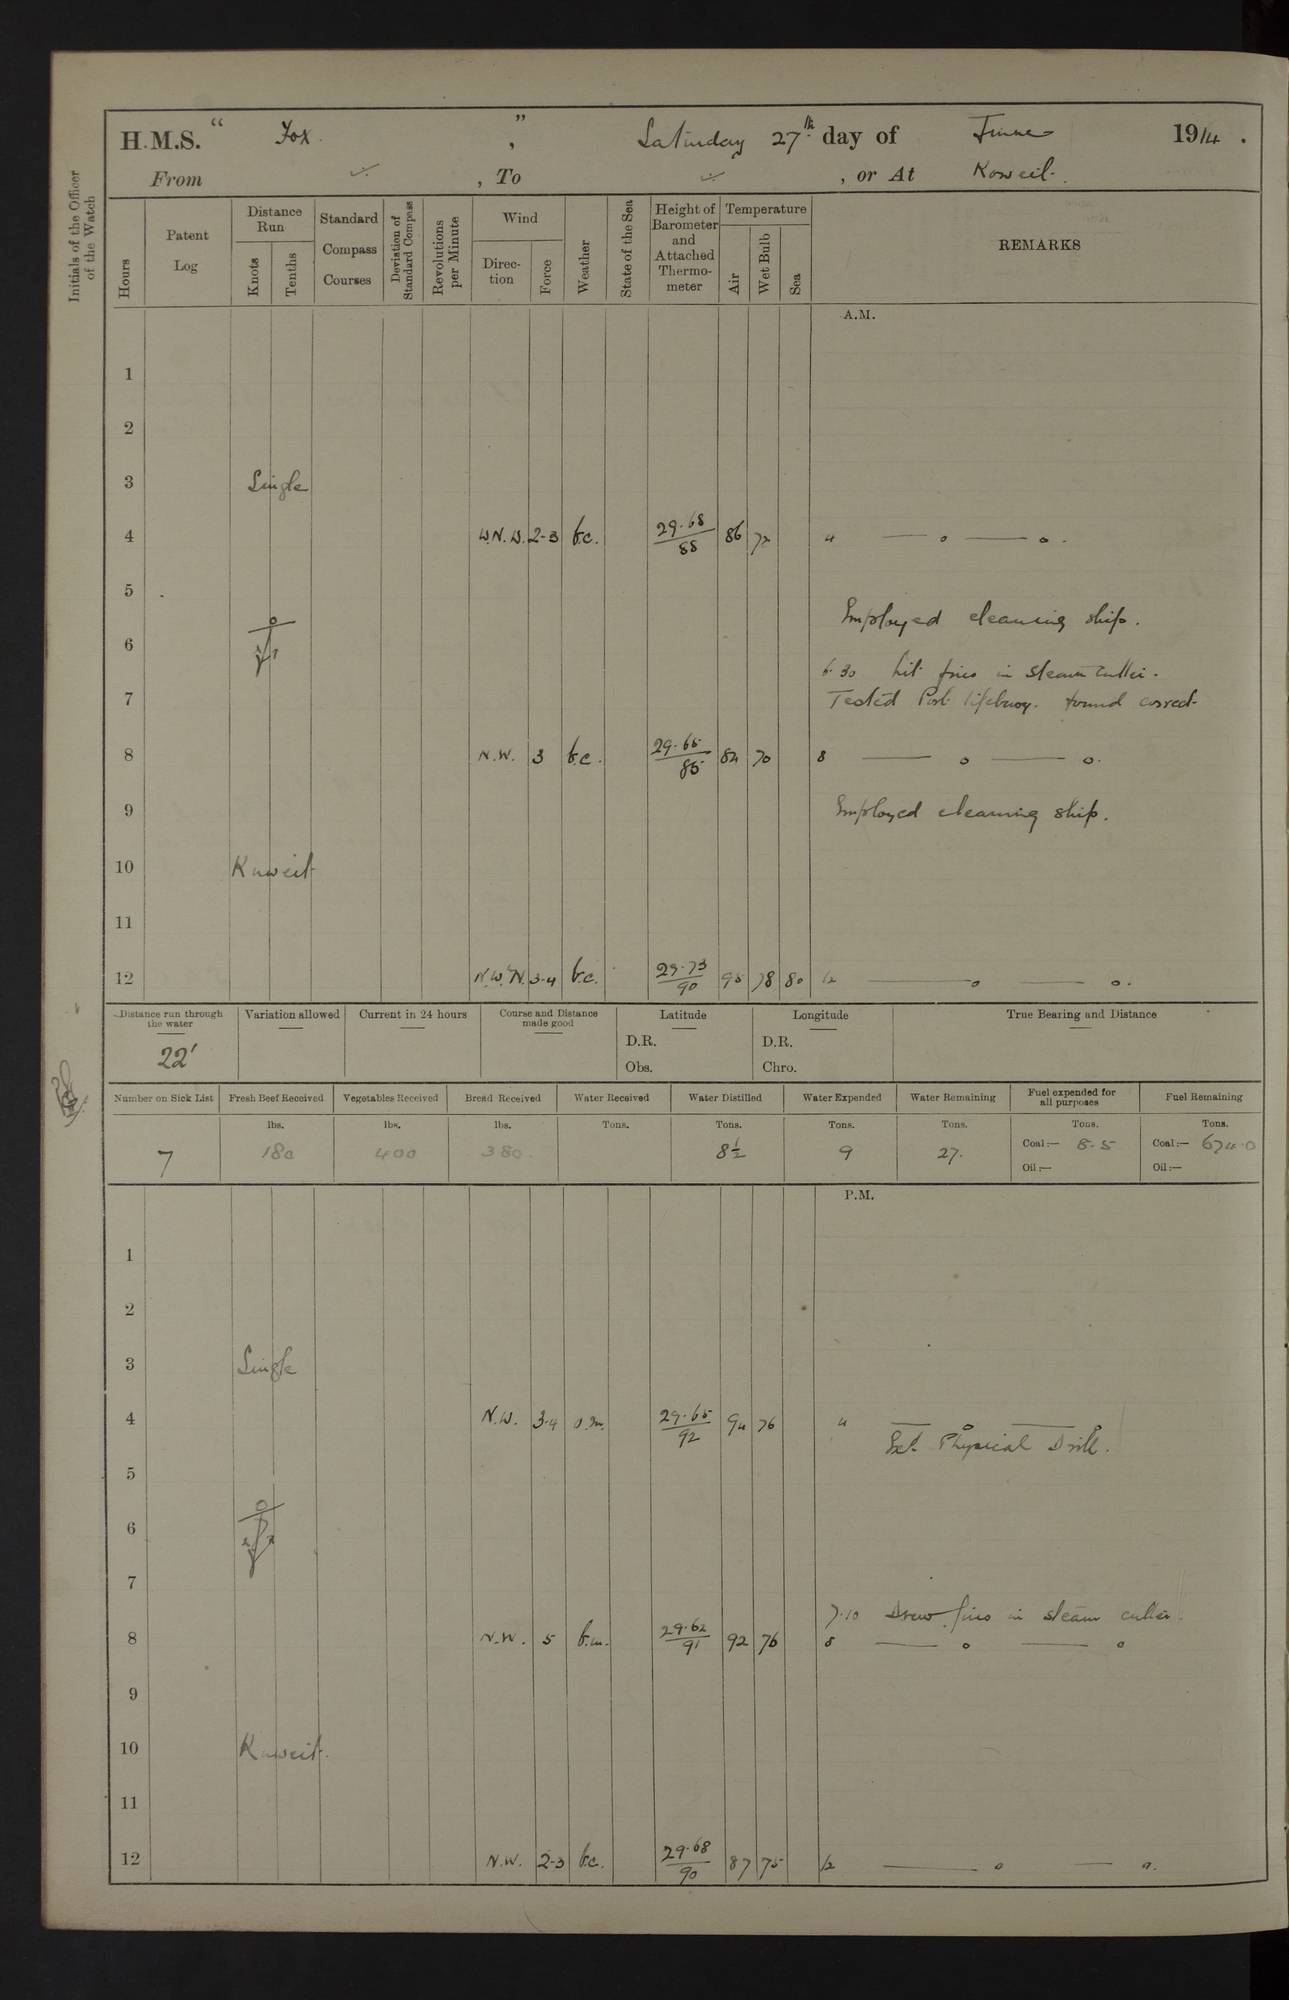 H.M.S. " Fox. ", Saturday 27th day of June 1914.
From , To , or At Koweit.
Initials of the Officer of the Watch
Hours
Patent Log
Distance Run
Knots
Tenths
Standard Compass Courses
Deviation of Standard Compass
Revolutions per Minute
Wind
Direction
Force
Weather
State of the Sea
Height of Barometer and Attached Thermometer
Temperature
Air
Wet Bulb
Sea
REMARKS
A.M.
1
2
3 Single
4 W.N.W. 2-3 b.c. 29.68 88 86 72 4 — o — o.
5
Employed cleaning ship.
6
6.30 Lit fires in steam cutter.
7 Tested Port lifebuoy. found correct
8 N.W. 3 b.c. 29.65 85 84 70 8 — o — o.
9 Employed cleaning ship.
10 Kuweit
11
12 N.W.'N. 3-4 b.c. 29.73 90 95 78 80 12 — o — o.
Distance run through the water
Variation allowed
Current in 24 hours
Course and Distance made good
Latitude
Longitude
True Bearing and Distance
22'
D.R.
Obs.
D.R.
Chro.
Number on Sick List
Fresh Beef Received
Vegetables Received
Bread Received
Water Received
Water Distilled
Water Expended
Water Remaining
Fuel expended for all purposes
Fuel Remaining
lbs. lbs. lbs. Tons. Tons. Tons. Tons. Tons. Tons.
7 180 400 380. 8½ 9 27. Coal:— 8.5 Coal:— 674.0
Oil:— Oil:—
P.M.
1
2
3 Single
4 N.W. 3-4 o.m. 29.65 92 94 76 4 — o — o
Ext. Physical Drill.
5
6
7
7.10 Drew fires in steam cutter.
8 N.W. 5 b.m. 29.62 91 92 76 8 — o — o
9
10 Kuweit.
11
12 N.W. 2-3 b.c. 29.68 90 87 75 12 — o — o.